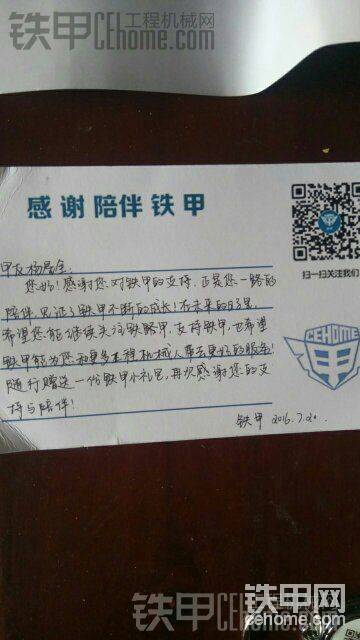 铁甲工程机械网
CEhome.com
感谢陪伴铁甲
扫一扫关注我们
甲友杨
您好!感谢您对铁甲的支持,正是您一路的
陪伴,见证了铁甲不断的成长!在未来的日子里,
希望您能继续关注铁甲,支持铁甲,也希望
铁甲能为您和更多工程机械人带去更好的服务!
随行赠送一份铁甲小礼包,再次感谢您的支
持与陪伴!
CEHOME
铁甲 2016.7.20.
铁甲CEhome.com
铁甲网
cehome.com